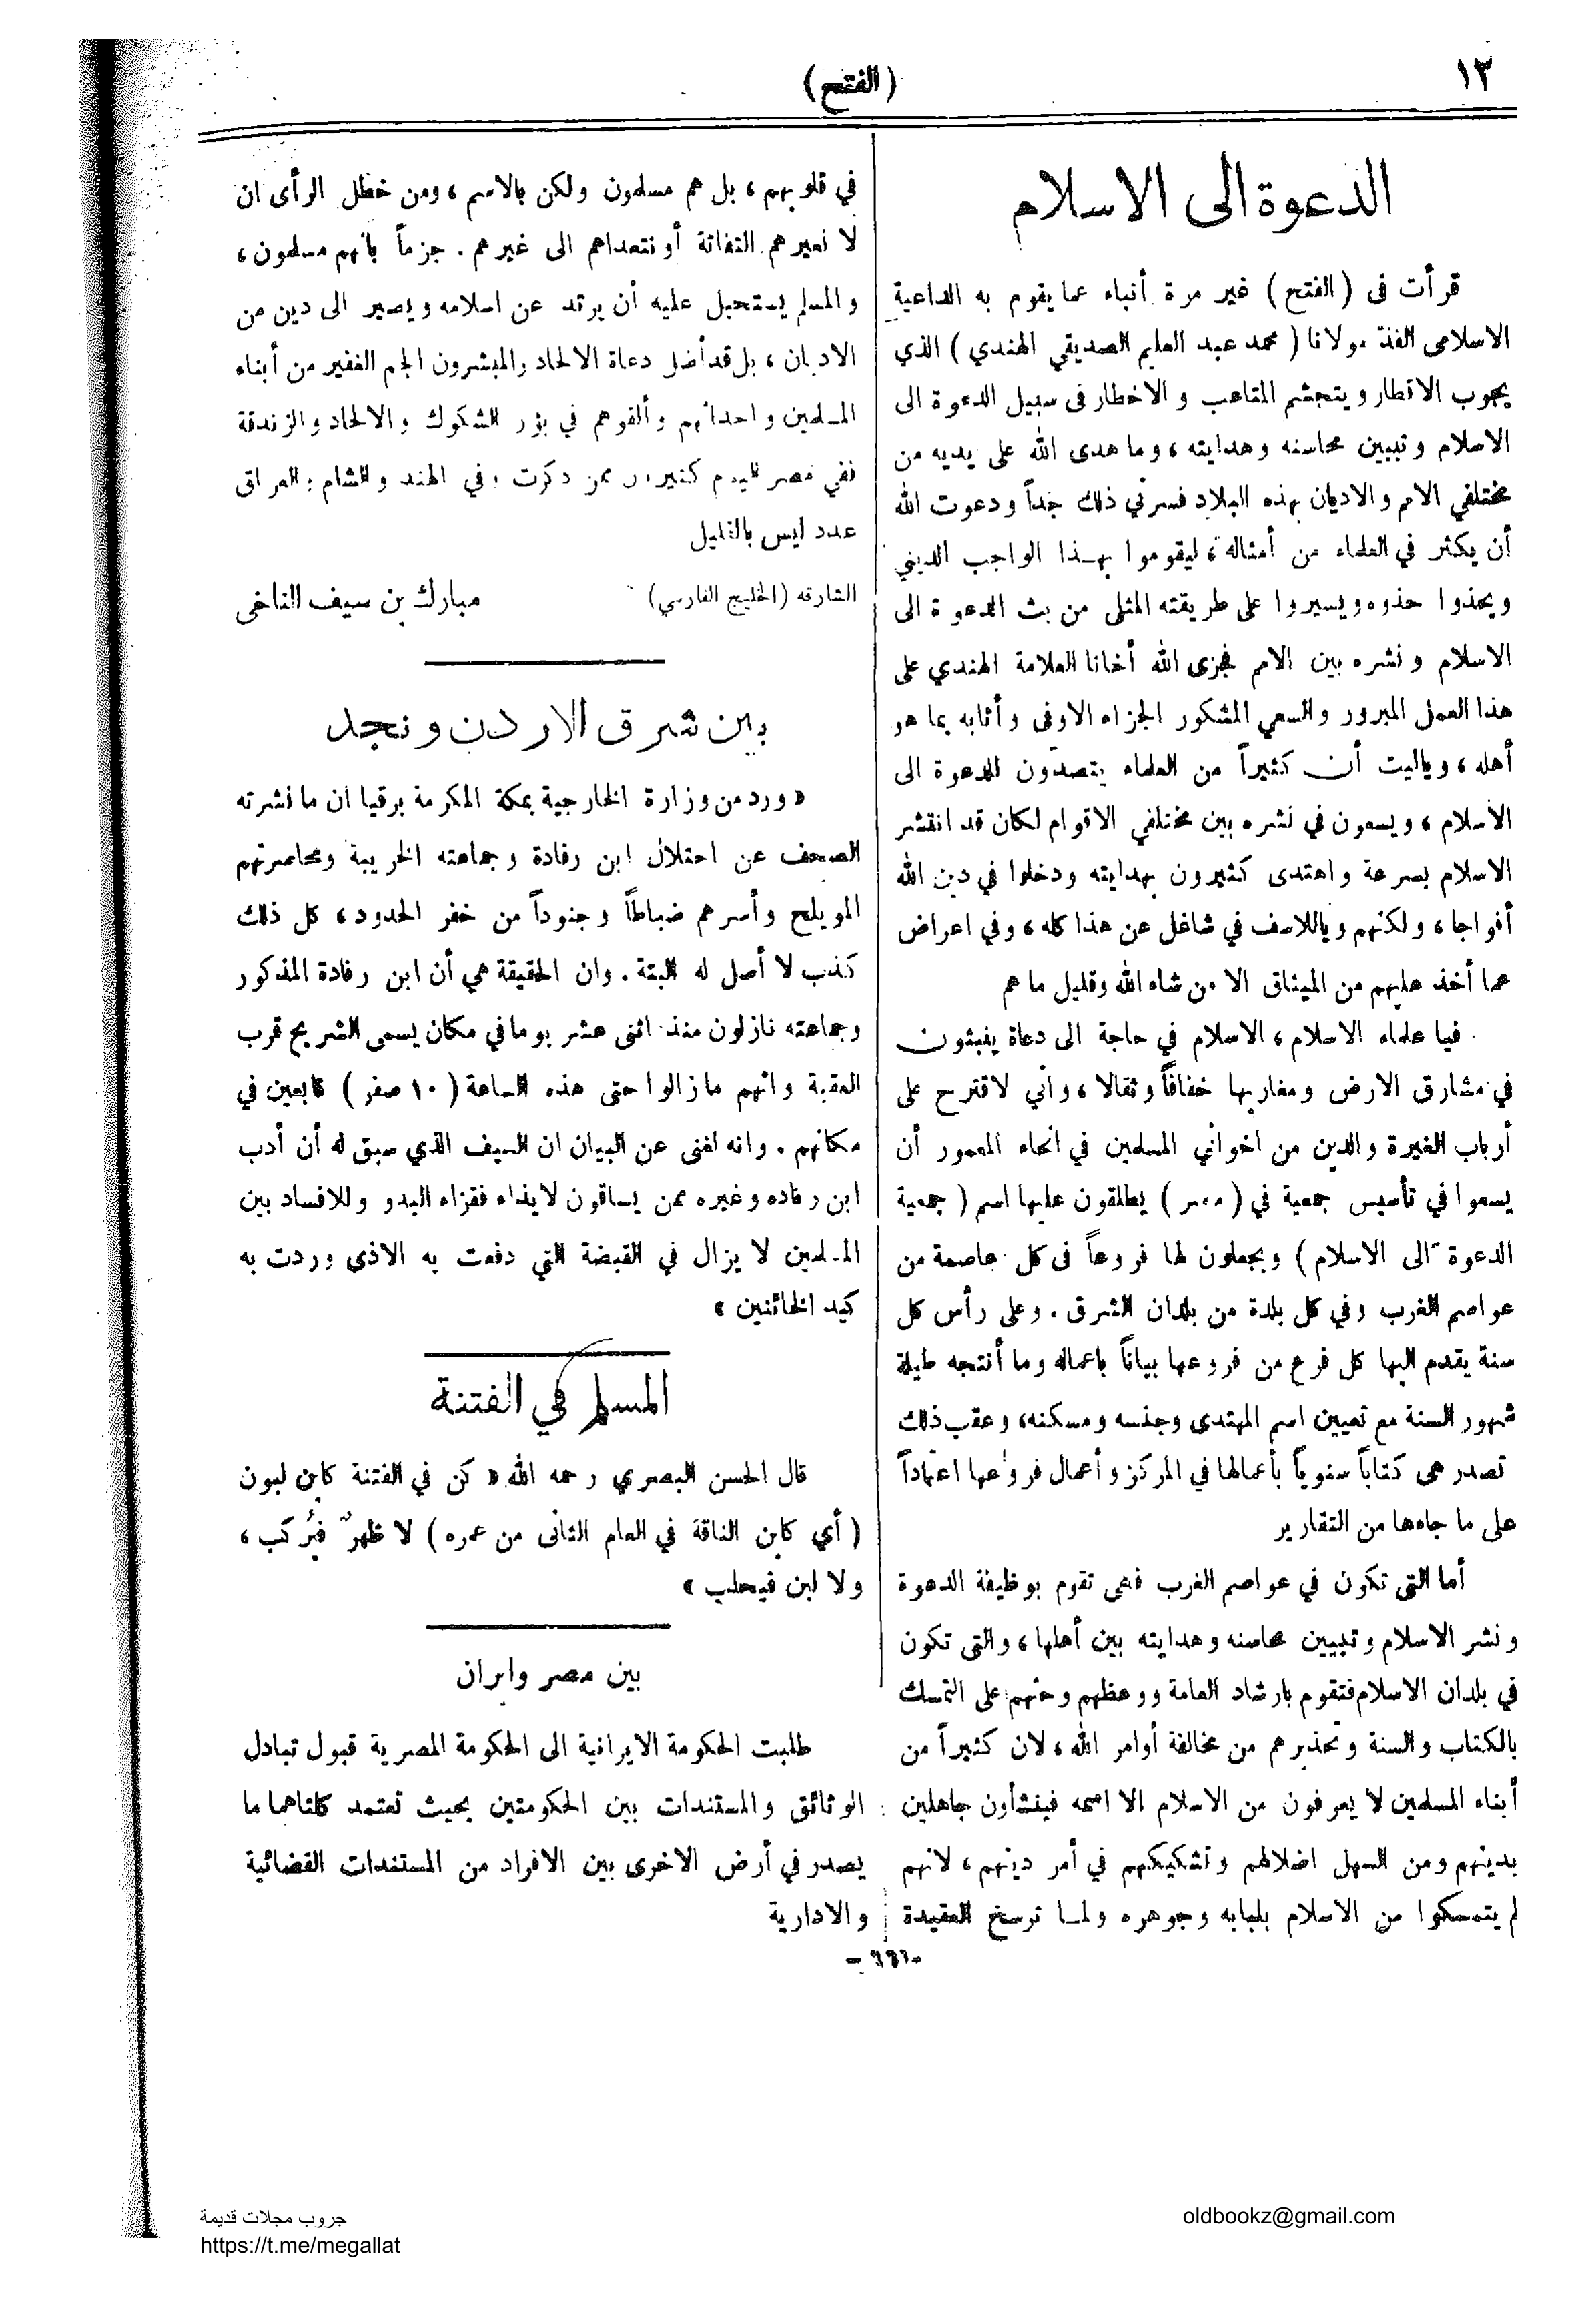 ١٢
(الفتح)
الدعوة الى الاسلام
قرأت فى (الفتح) غير مرة أنباء عما يقوم به الداعية
الاسلامى الفذ مولانا (محمد عبد العليم الصديقي الهندي) الذي
يجوب الاقطار ويتجشم المتاعب والاخطار فى سبيل الدعوة الى
الاسلام وتبيين محاسنه وهدايته، وما هدى الله على يديه من
مختلفي الامم والاديان بهذه البلاد فسرني ذلك جداً ودعوت الله
أن يكثر في العلماء من أمثاله، ليقوموا بهذا الواجب الديني
ويحذوا حذوه ويسيروا على طريقته المثلى من بث الدعوة الى
الاسلام ونشره بين الامم فجزى الله أخانا العلامة الهندي على
هذا العمل المبرور والسعي المشكور الجزاء الاوفى وأثابه بما هو
أهله، وياليت أن كثيراً من العلماء يتصدّون للدعوة الى
الاسلام، ويسعون في نشره بين مختلفي الاقوام لكان قد انتشر
الاسلام بسرعة واهتدى كثيرون بهدايته ودخلوا في دين الله
أفواجا، ولكنهم وياللاسف في شاغل عن هذا كله، وفي اعراض
عما أخذ عليهم من الميثاق الا من شاء الله وقليل ما هم
فيا علماء الاسلام، الاسلام في حاجة الى دعاة ينبثون
في مشارق الارض ومغاربها خفافاً وثقالا، واني لاقترح على
أرباب الغيرة والدين من اخواني المسلمين في انحاء المعمور أن
يسعوا في تأسيس جمعية في (مصر) يطلقون عليها اسم (جمعية
الدعوة الى الاسلام) ويجعلون لها فروعاً فى كل عاصمة من
عواصم الغرب وفي كل بلدة من بلدان الشرق. وعلى رأس كل
سنة يقدم اليها كل فرع من فروعها بياناً باعماله وما أنتجه طيلة
شهور السنة مع تعيين اسم المهتدى وجنسه ومسكنه، وعقب ذلك
تصدر هى كتاباً سنوياً بأعمالها في المركز وأعمال فروعها اعتماداً
على ما جاءها من التقارير
أما التى تكون في عواصم الغرب فهى تقوم بوظيفة الدعوة
ونشر الاسلام وتبيين محاسنه وهدايته بين أهلها، والتى تكون
في بلدان الاسلام فتقوم بارشاد العامة ووعظهم وحثهم على التمسك
بالكتاب والسنة وتحذيرهم من مخالفة أوامر الله، لان كثيراً من
أبناء المسلمين لا يعرفون من الاسلام الا اسمه فينشأون جاهلين
بدينهم ومن السهل اضلالهم وتشكيكهم في أمر دينهم، لانهم
لم يتمسكوا من الاسلام بلبابه وجوهره ولما ترسخ العقيدة
في قلوبهم، بل هم مسلمون ولكن بالاسم، ومن خطل الرأى ان
لا نعيرهم التفاتة أو نتعداهم الى غيرهم. جزماً بانهم مسلمون،
والمسلم يستحيل عليه أن يرتد عن اسلامه ويصير الى دين من
الاديان، بل قد أضل دعاة الالحاد والمبشرون الجم الغفير من أبناء
المسلمين واحداثهم وألقوهم في بؤر الشكوك والالحاد والزندقة
ففي مصر اليوم كثيرون ممن ذكرت وفي الهند والشام والعراق
عدد ليس بالقليل
الشارقه (الخليج الفارسي) مبارك بن سيف الناخى
بين شرق الاردن ونجد
« ورد من وزارة الخارجية بمكة المكرمة برقيا ان ما نشرته
الصحف عن احتلال ابن رفادة وجماعته الخريبة ومحاصرتهم
المويلح وأسرهم ضباطاً وجنوداً من خفر الحدود، كل ذلك
كذب لا أصل له البتة. وان الحقيقة هي أن ابن رفادة المذكور
وجماعته نازلون منذ اثنى عشر يوما في مكان يسمى الشريح قرب
العقبة وانهم مازالوا حتى هذه الساعة (١٠ صفر) قابعين في
مكانهم. وانه لغنى عن البيان ان السيف الذي سبق له أن أدب
ابن رفاده وغيره ممن يساقون لايذاء فقراء البدو وللافساد بين
المسلمين لا يزال في القبضة التي دفعت به الاذى وردت به
كيد الخائنين »
المسلم في الفتنة
قال الحسن البصري رحمه الله « كن في الفتنة كابن لبون
(أي كابن الناقة في العام الثانى من عمره) لا ظهرٌ فيُركب،
ولا لبن فيحلب »
بين مصر وايران
طلبت الحكومة الايرانية الى الحكومة المصرية قبول تبادل
الوثائق والمستندات بين الحكومتين بحيث تعتمد كلتاهما ما
يصدر في أرض الاخرى بين الافراد من المستندات القضائية
والادارية
جروب مجلات قديمة
https://t.me/megallat
oldbookz@gmail.com